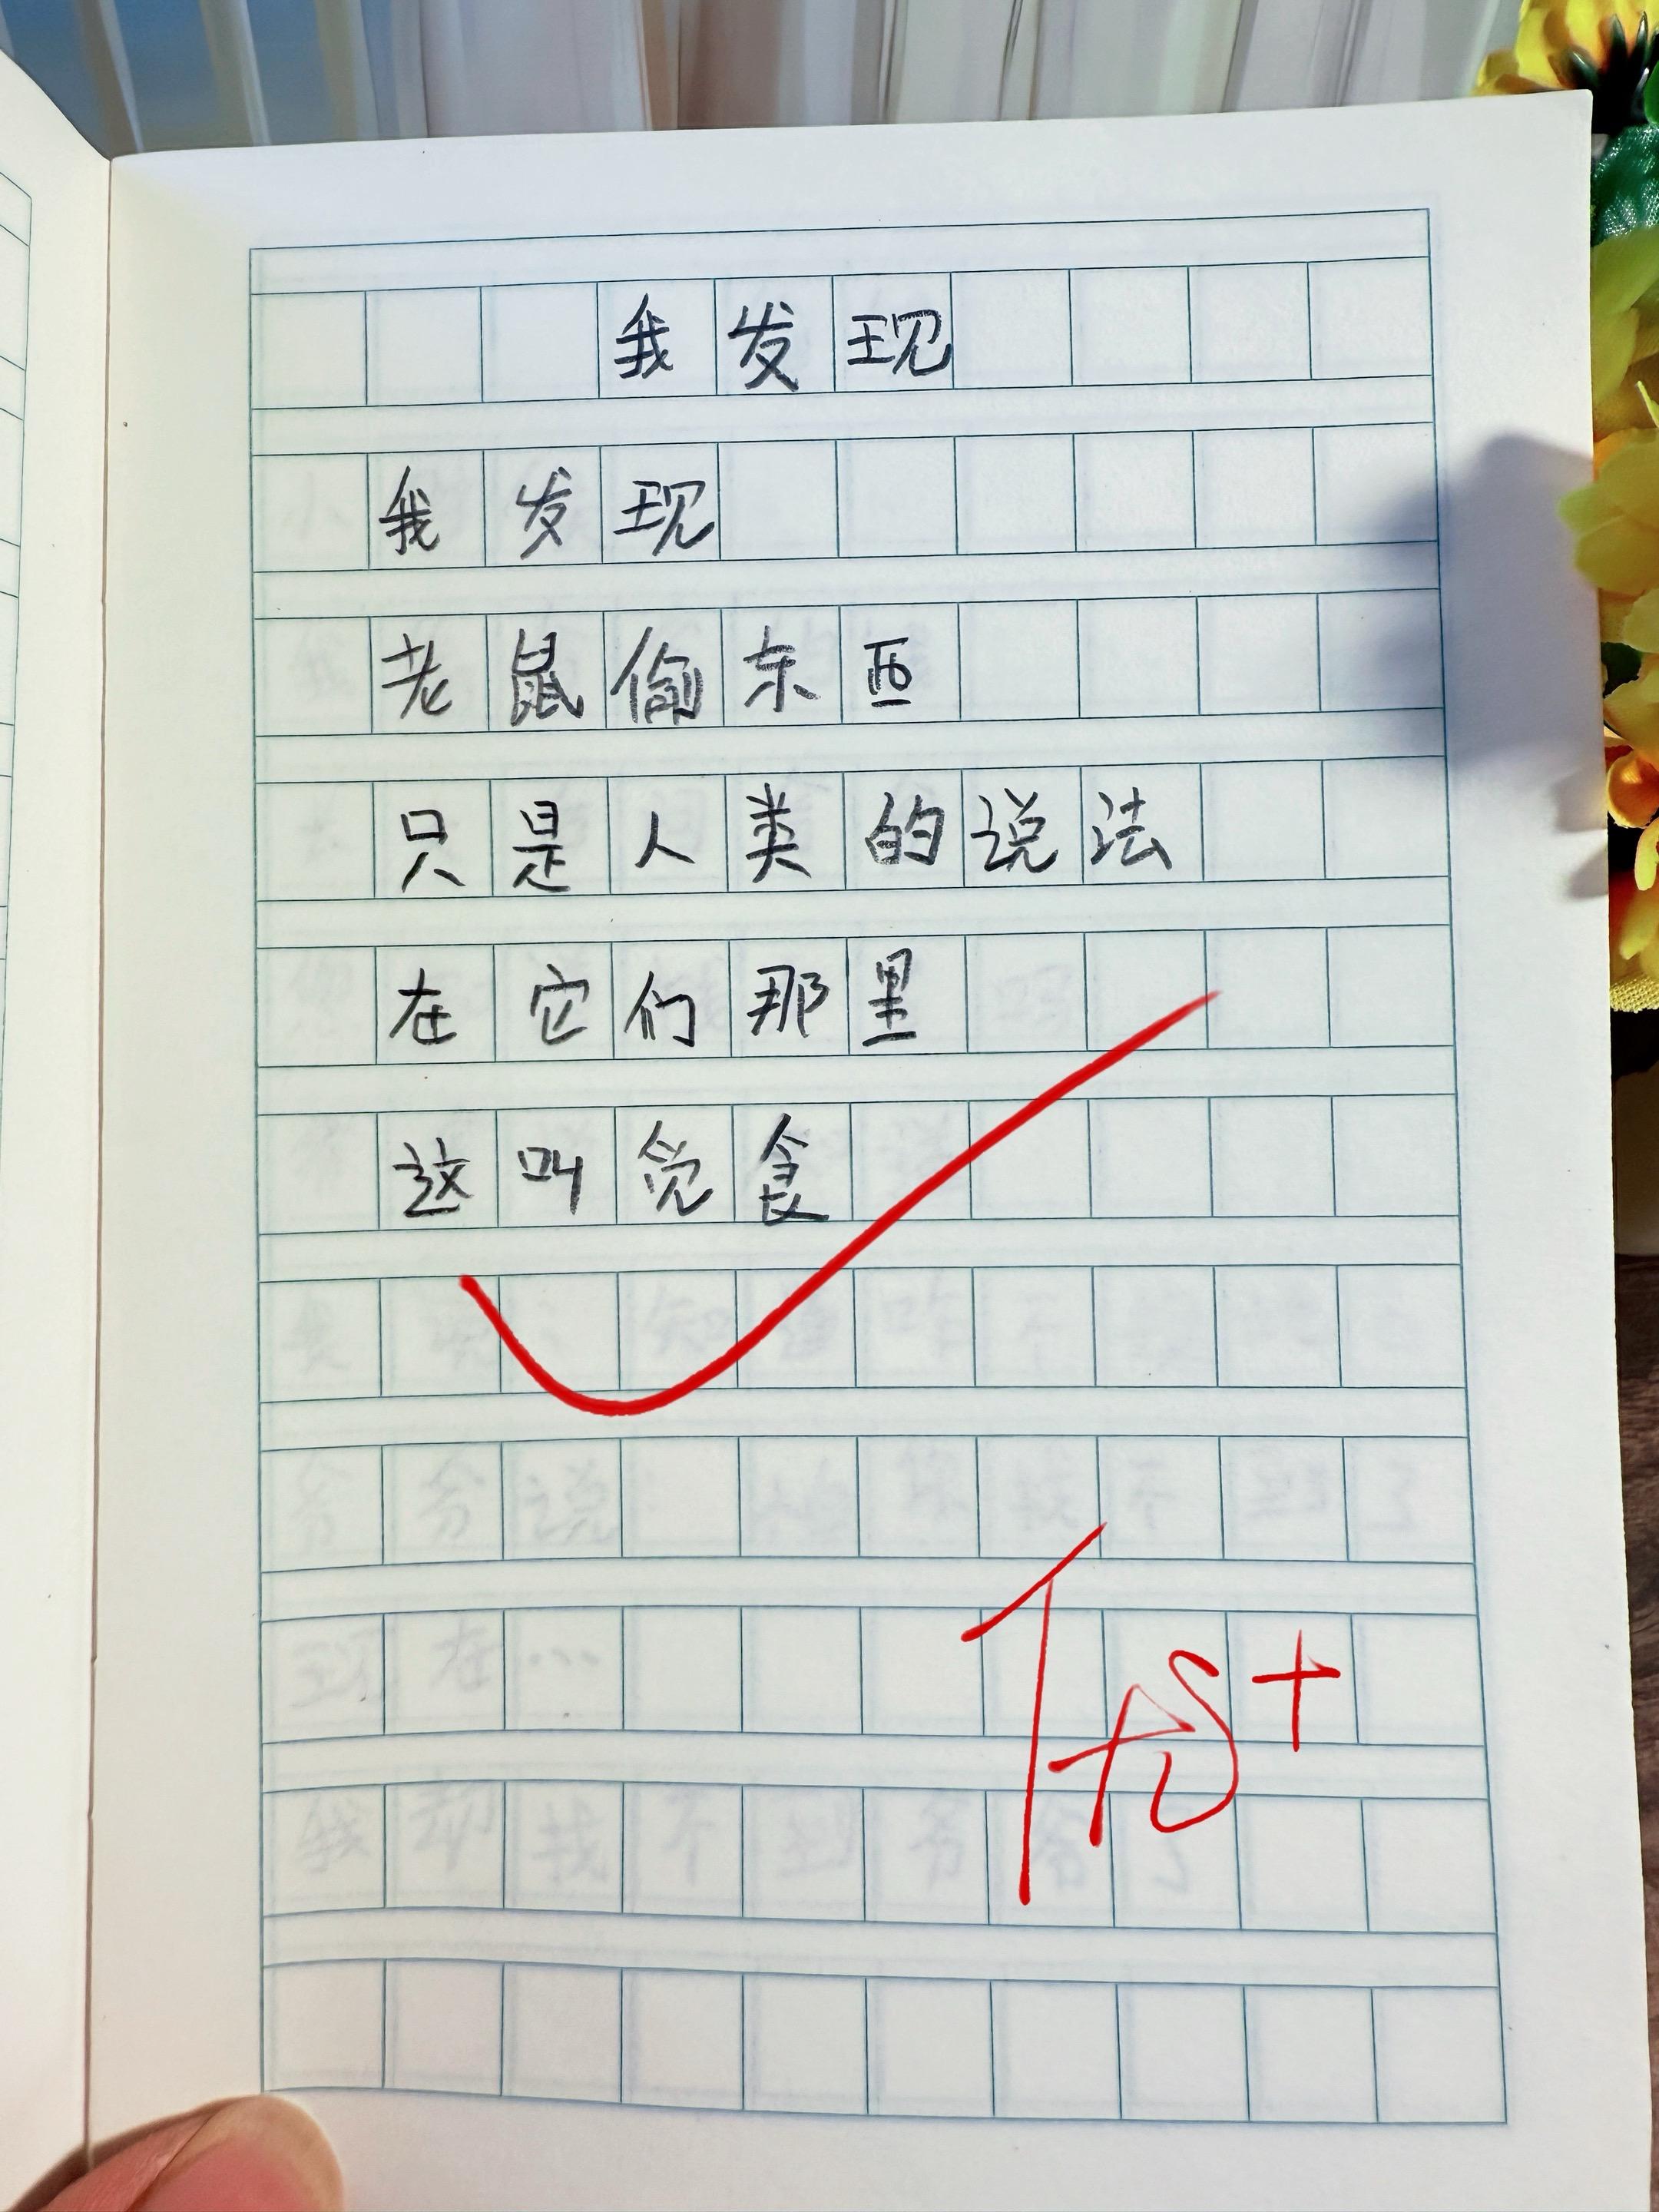 我发现
我发现
老鼠偷东西
只是人类的说法
在它们那里
这叫觅食
优+